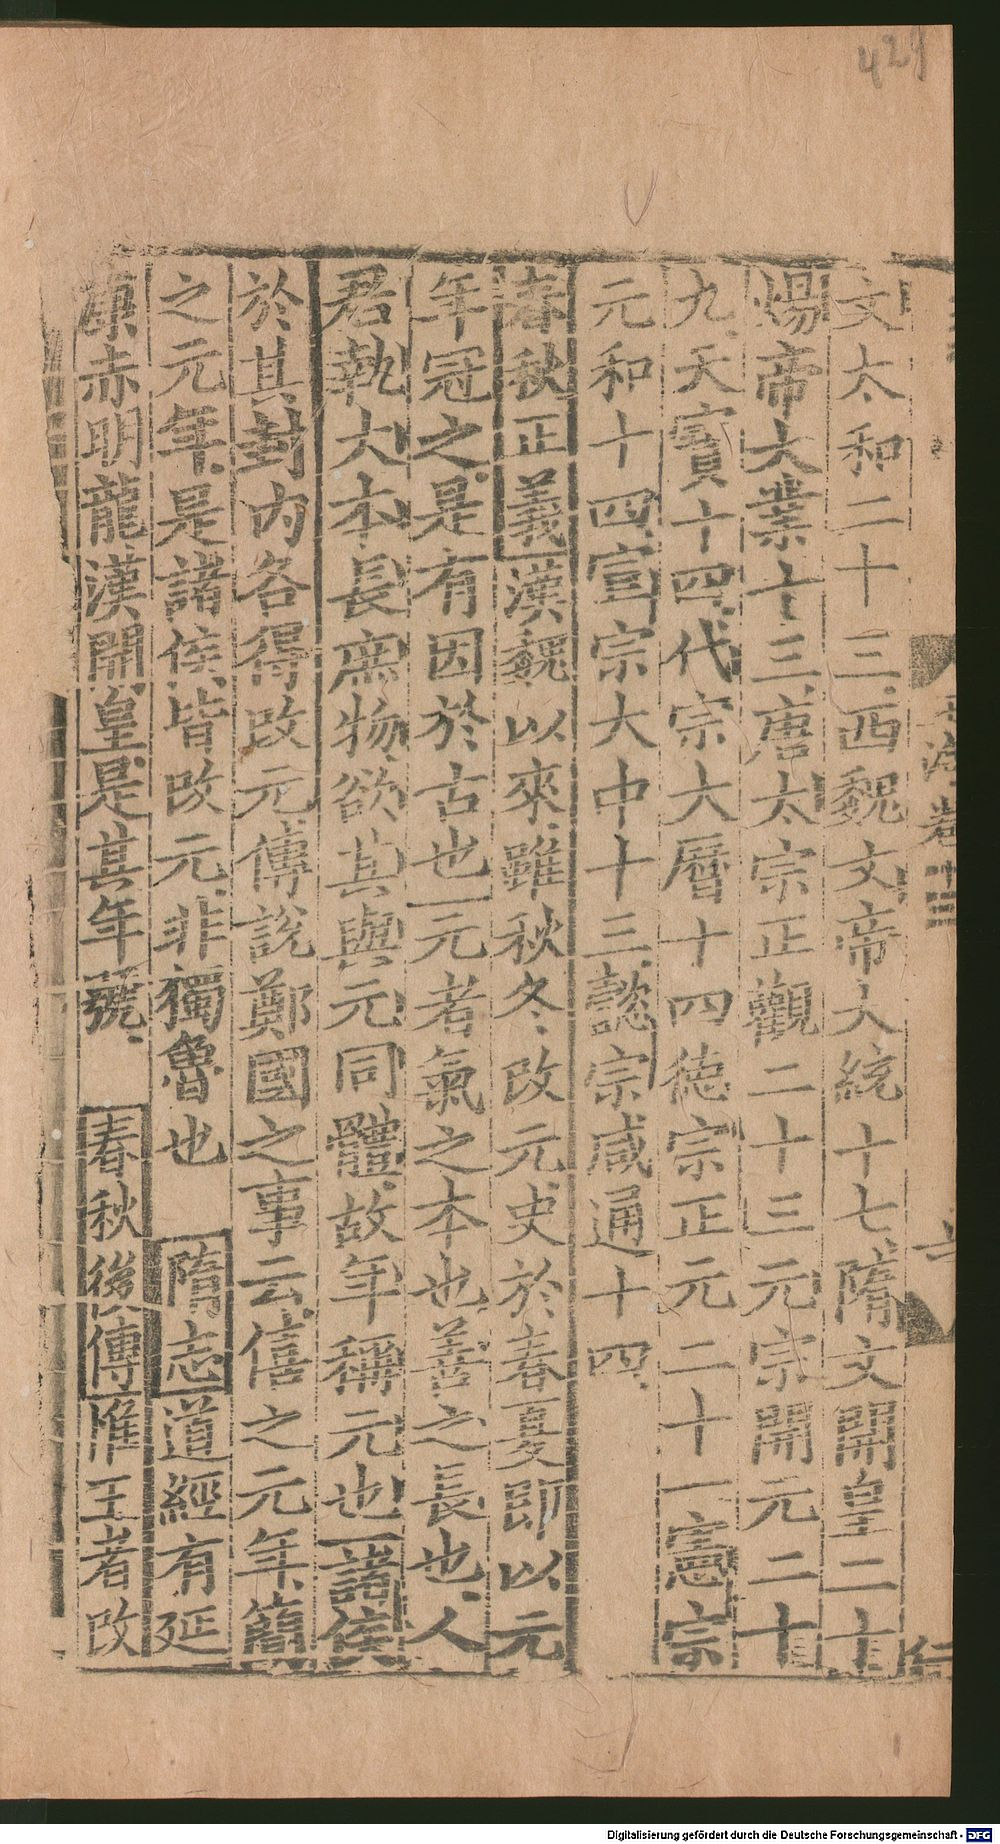 421
文太和二十三西魏文帝大統十七隋文開皇二十
煬帝大業十三唐太宗正觀二十三元宗開元二十
九天寶十四代宗大曆十四徳宗正元二十一憲宗
元和十四宣宗大中十三懿宗咸通十四
春秋正義漢魏以來雖秋冬改元史於春夏即以元
年冠之是有因於古也元者氣之本也善之長也人
君執大本長庶物欲其與元同體故年稱元也諸侯
於其封内各得改元傳説鄭國之事云僖之元年簡
之元年是諸侯皆改元非獨魯也 隋志道經有延
康赤明龍漢開皇是其年號 春秋後傳惟王者改
海卷十三
Digitalisierung gefördert durch die Deutsche Forschungsgemeinschaft - DFG